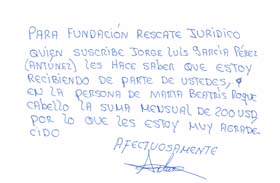 PARA FUNDACIÓN RESCATE JURIDICO
QUIEN SUSCRIBE JORGE LUIS GARCÍA PÉREZ
(ANTÚNEZ) LES HACE SABER QUE ESTOY
RECIBIENDO DE PARTE DE USTEDES,
EN LA PERSONA DE MARTA BEATRÍS ROQUE
CABELLO LA SUMA MENSUAL DE 200 USD
POR LO QUE LES ESTOY MUY AGRADE
CIDO
AFECTUOSAMENTE